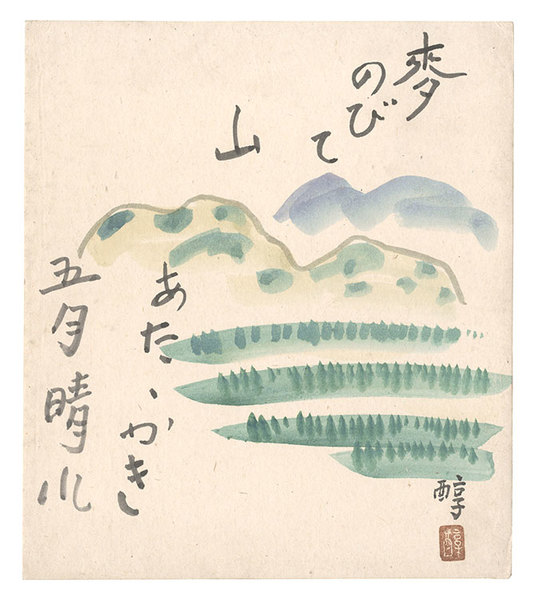 麥
のびて
山
あたゝかき
五月晴れ
醇